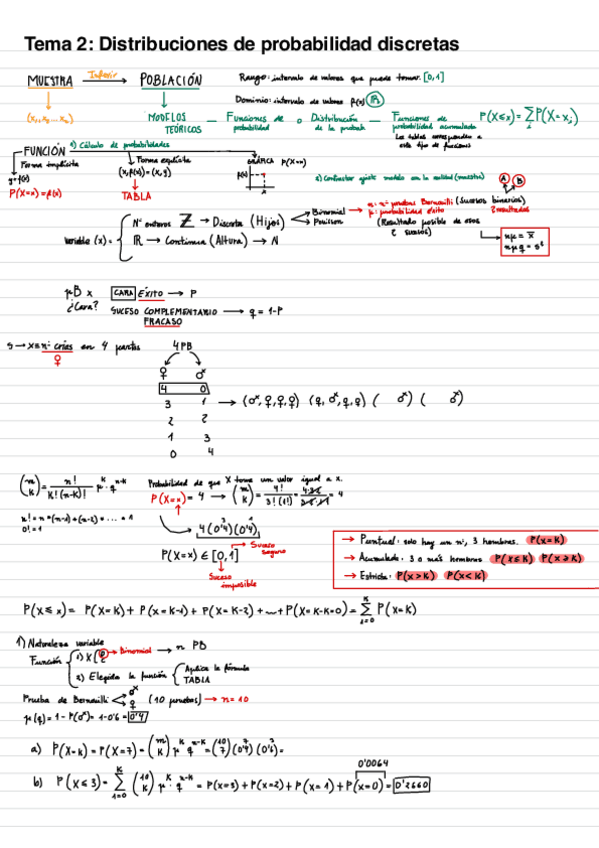 Tema 2: Distribuciones de probabilidad discretas
MUESTRA Inferir POBLACIÓN Rango: intervalo de valores que puede tomar. [0,1]
Dominio: intervalo de valores f(x) (R)
(x₁, x₂ ... xₙ) MODELOS TEÓRICOS — Funciones de probabilidad o Distribución de la probab. — Funciones de probabilidad acumulada P(X≤x) = ∑P(X=xⱼ)
Las tablas corresponden a este tipo de funciones
1) Cálculo de probabilidades
FUNCIÓN
Forma implícita Forma explícita GRÁFICA P(X=x)
y=f(x) (x, f(x)) = (x, y) f(x)
P(X=x) = f(x) TABLA x
2) Contrastar ajuste modelo con la realidad (muestra) A B
Variable (x) = Nº enteros Z → Discreta (Hijos) Binomial → n = nº pruebas Bernouilli (Sucesos binarios)
Poisson p: probabilidad éxito 2 resultados
(Resultado posible de esos 2 sucesos)
R → Continua (Altura) → N
nμ = x̄
nμq = s²
pB x CARA ÉXITO → P
¿Cara? SUCESO COMPLEMENTARIO → q = 1-P
FRACASO
5 → X=nº crías en 4 partos 4PB
♀ ♀ ♂
4 0
3 1 → (♂,♀,♀,♀) (♀,♂,♀,♀) ( ♂) ( ♂)
2 2
1 3
0 4
(n K) = n! / K!(n-K)! p^K · q^n-K Probabilidad de que X tome un valor igual a x.
P(X=x) = 4 → (n K) = 4! / 3!(1!) = 4·3·2·1 / 3·2·1·1 = 4
n! = n*(n-1)*(n-2)* ... = 1
0! = 1
4(0'4)(0'4)
P(X=x) ∈ [0,1] Suceso seguro
Suceso imposible
→ Puntual: solo hay un nº, 3 hombres. P(X=K)
→ Acumulada: 3 o más hombres P(X≤K) P(X≥K)
→ Estricta: P(X>K) P(X<K)
P(X≤x) = P(X=K) + P(X=K-1) + P(X=K-2) + ... + P(X=K-K=0) = ∑ P(X=K)
K
i=0
1) Naturaleza variable
Función 1) X Binomial → n PB
2) Elegida la función Aplica la fórmula
TABLA
Prueba de Bernouilli ♂ ♀ (10 pruebas) → n=10
p(q) = 1 - P(♂) = 1-0'6 = 0'4
a) P(X=K) = P(X=7) = (n K) p^K q^n-K = (10 7)(0'4)(0'6) =
0'0064
b) P(X≤3) = ∑ (10 K) p^K · q^n-K = P(X=3) + P(X=2) + P(X=1) + P(X=0) = 0'2660
K
i=0